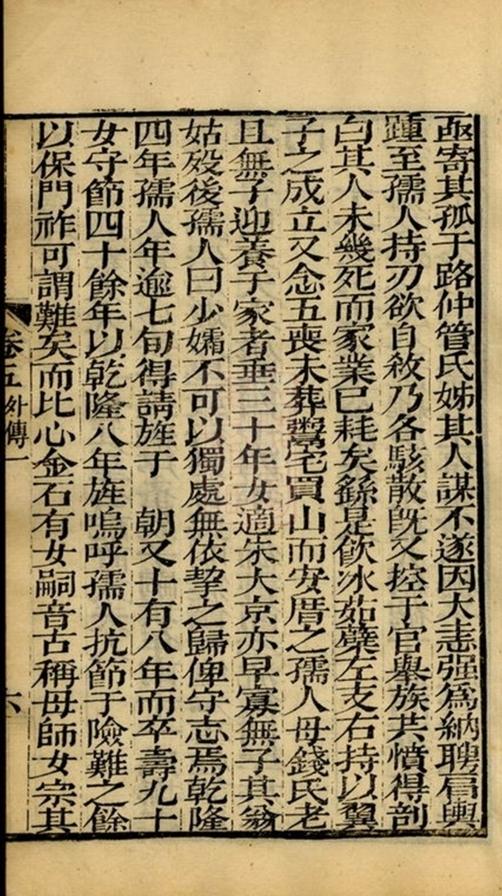 亟寄其孤于路仲管氏姊其人謀不遂因大恚强爲納聘肩輿
踵至孺人持刃欲自殺乃各駭散旣又控于官舉族共憤得剖
白其人未幾死而家業已耗矣繇是飮冰茹蘗左支右持以翼
子之成立又念五喪未葬鬻宅買山而安厝之孺人母錢氏老
且無子迎養于家者垂三十年女適朱大京亦早寡無子其翁
姑歿後孺人曰少孀不可以獨處無依挈之歸俾守志焉乾隆
四年孺人年逾七旬得請旌于 朝又十有八年而卒壽九十
女守節四十餘年以乾隆八年旌嗚呼孺人抗節于險難之餘
以保門祚可謂難矣而比心金石有女嗣音古稱母師女宗其
卷五 外傳一 六